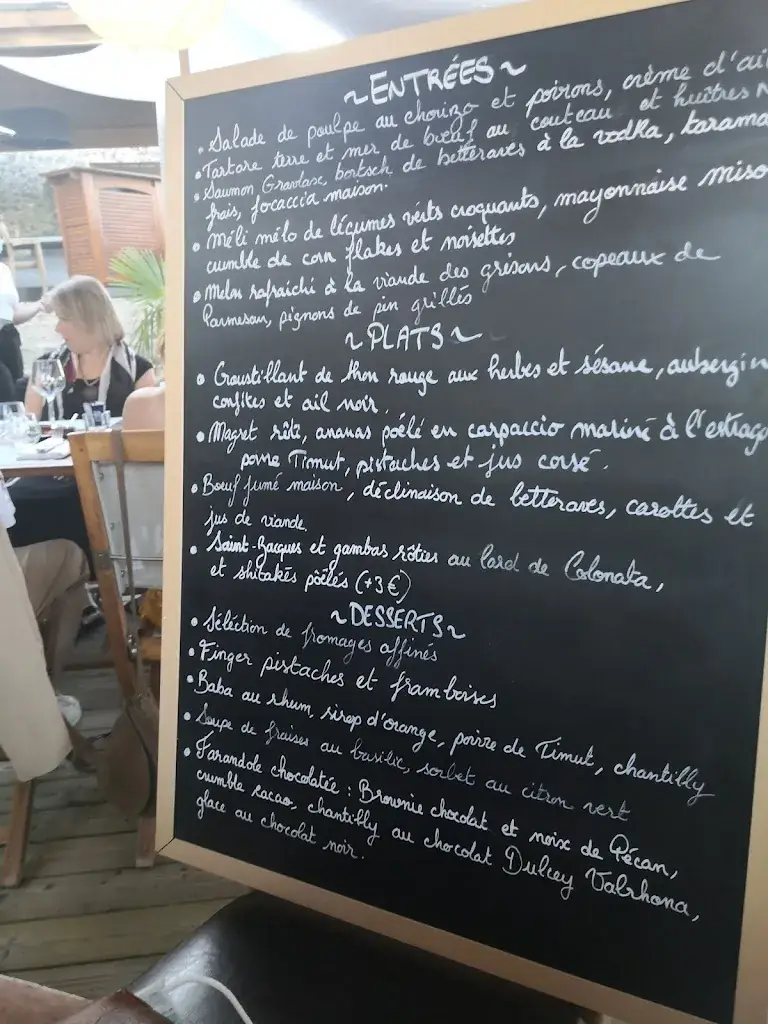 ~ENTRÉES~
• Salade de poulpe au chorizo et poivrons, crème d'ai
• Tartare terre et mer de bœuf au couteau et huîtres N
• Saumon Gravlax, bortsch de betteraves à la vodka, tarama
frais, focaccia maison.
• Méli mélo de légumes verts croquants, mayonnaise miso
crumble de corn flakes et noisettes
• Melon rafraichi à la viande des grisons, copeaux de
Parmesan, pignons de pin grillés
~PLATS~
• Croustillant de thon rouge aux herbes et sésame, aubergin
confites et ail noir.
• Magret rôti, ananas poêlé en carpaccio mariné à l'estrago
Timut, pistaches et jus corsé.
• Bœuf fumé maison, déclinaison de betteraves, carottes et
jus de viande.
• Saint-Jacques et gambas rôties au lard de Colonata,
et shitakés pôêlés (+3€)
~DESSERTS~
• Séléction de fromages affinés
• Finger pistaches et framboises
• Baba au rhum, sirop d'orange, poivre de Timut, chantilly
• Soupe de fraises au basilic, sorbet au citron vert
• Farandole chocolatée : Brownie chocolat et noix de Pécan,
crumble cacao, chantilly au chocolat Dulcey Valrhona,
glace au chocolat noir.